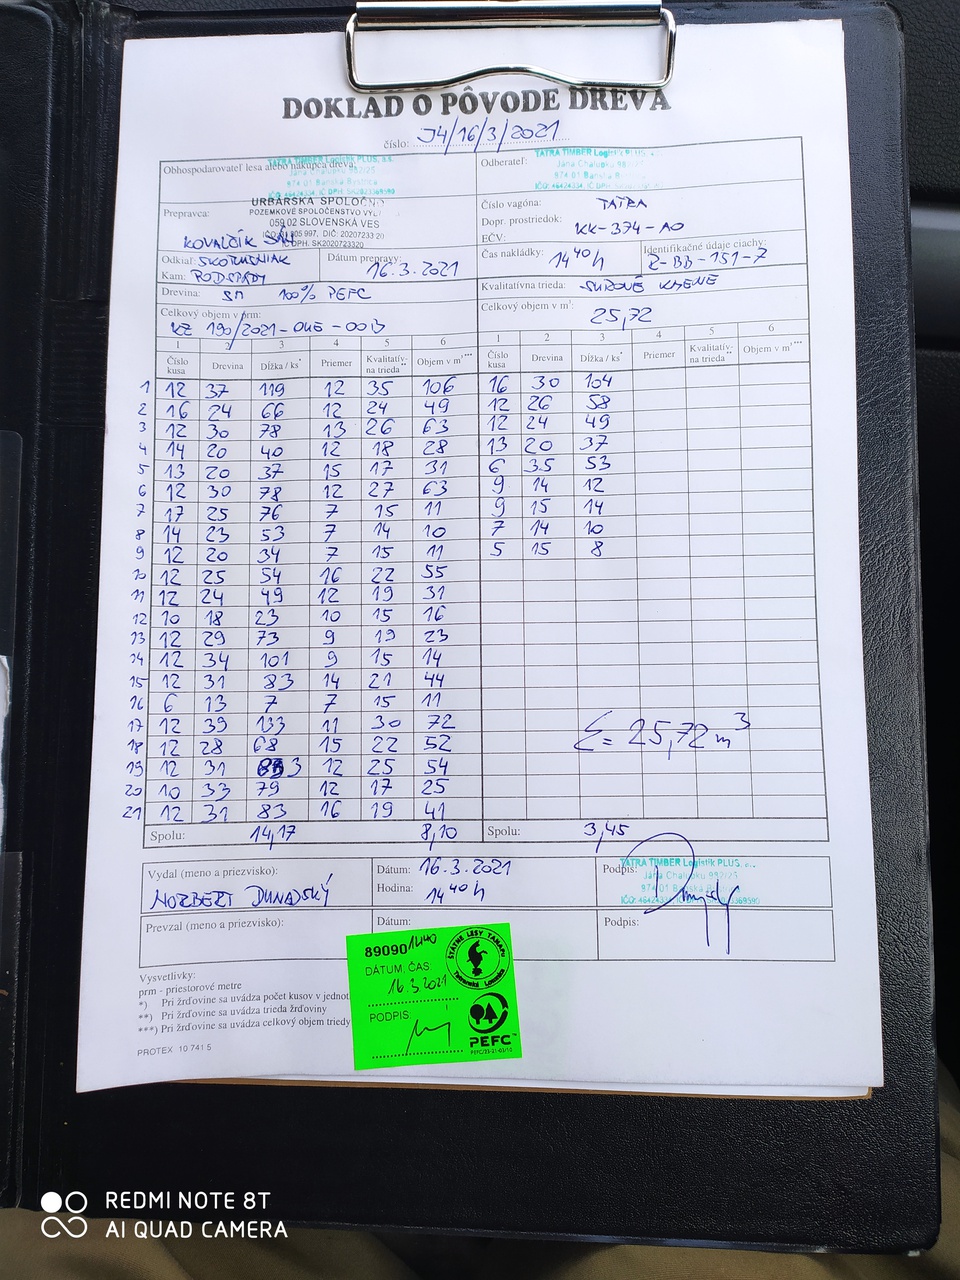 DOKLAD O PÔVODE DREVA
číslo: J4/16/3/2021
Obhospodarovateľ lesa alebo nákupca dreva:
TATRA TIMBER Logistik PLUS, s.r.o.
Jána Chalupku 982/25
974 01 Banská Bystrica
IČO: 46424334, IČ DPH: SK2023369590
Odberateľ:
TATRA TIMBER Logistik PLUS
Jána Chalupku 982/25
974 01 Banská Bystrica
Prepravca:
URBÁRSKA SPOLOČNO
POZEMKOVÉ SPOLOČENSTVO
059 02 SLOVENSKÁ VES
DIČ: 2020723320
IČ DPH. SK2020723320
KOVALČÍK SÁM
Číslo vagóna: TATRA
Dopr. prostriedok:
EČV: KK-374-AO
Odkiaľ: SKOTUŠNIAK
Kam: PODSPÁDY
Dátum prepravy: 16.3.2021
Čas nakládky: 14 40 h
Identifikačné údaje ciachy: R-BB-151-7
Drevina: SM 100% PEFC
Kvalitatívna trieda: SUROVÉ KMENE
Celkový objem v prm:
KZ 190/2021-OKE-
Celkový objem v m³: 25,72
1 2 3 4 5 6 1 2 3 4 5 6
Číslo kusa Drevina Dĺžka / ks* Priemer Kvalitatívna trieda** Objem v m³*** Číslo kusa Drevina Dĺžka / ks* Priemer Kvalitatívna trieda** Objem v m³***
1 12 37 119 12 35 106 16 30 104
2 16 24 66 12 24 49 12 26 58
3 12 30 78 13 26 63 12 24 49
4 14 20 40 12 18 28 13 20 37
5 13 20 37 15 17 31 6 35 53
6 12 30 78 12 27 63 9 14 12
7 17 25 76 7 15 11 9 15 14
8 14 23 53 7 14 10 7 14 10
9 12 20 34 7 15 11 5 15 8
10 12 25 54 16 22 55
11 12 24 49 12 19 31
12 10 18 23 10 15 16
13 12 29 73 9 19 23
14 12 34 101 9 15 14
15 12 31 83 14 21 44
16 6 13 7 7 15 11
17 12 39 133 11 30 72
18 12 28 68 15 22 52
Σ = 25,72 m³
19 12 31 83 12 25 54
20 10 33 79 12 17 25
21 12 31 83 16 19 41
Spolu: 14,17 8,10 Spolu: 3,45
Vydal (meno a priezvisko):
NORBERT DUNAJSKÝ
Dátum: 16.3.2021
Hodina: 14 40 h
Podpis:
TATRA TIMBER Logistik PLUS
Jána Chalupku 982/25
974 01 Banská Bystrica
Prevzal (meno a priezvisko):
Dátum:
Podpis:
89090 1440
DÁTUM, ČAS:
16.3.2021
PODPIS:
ŠTÁTNE LESY TANAPu
Tatranská Lomnica
PEFC
Vysvetlivky:
prm - priestorové metre
*) Pri žrďovine sa uvádza počet kusov v jednot
**) Pri žrďovine sa uvádza trieda žrďoviny
***) Pri žrďovine sa uvádza celkový objem triedy
PROTEX 10 741 5
REDMI NOTE 8T
AI QUAD CAMERA